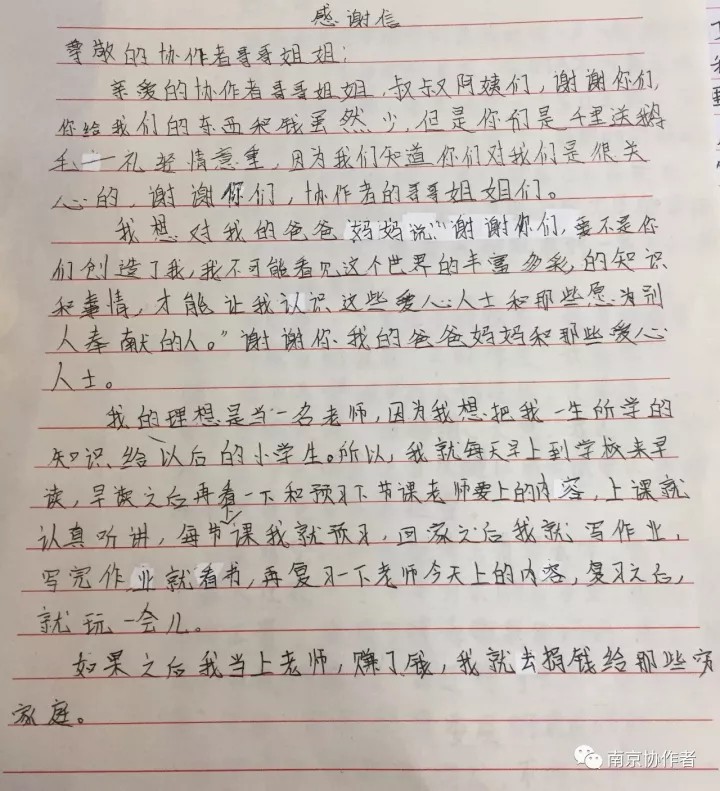 感谢信
尊敬的协作者哥哥姐姐:
亲爱的协作者哥哥姐姐,叔叔阿姨们,谢谢你们,
你给我们的东西和钱虽然少,但是你们是千里送鹅
毛一礼轻情意重,因为我们知道你们对我们是很关
心的,谢谢你们,协作者的哥哥姐姐们。
我想对我的爸爸妈妈说"谢谢你们,要不是你
们创造了我,我不可能看见这个世界的丰富多彩,的知识
和事情,才能让我认识这些爱心人士和那些愿为别
人奉献的人。"谢谢你我的爸爸妈妈和那些爱心
人士。
我的理想是当一名老师,因为我想把我一生所学的
知识给以后的小学生。所以,我就每天早上到学校来早
读,早读之后再看一下和预习下节课老师要上的内容,上课就
认真听讲,每节课我就预习,回家之后我就写作业,
写完作业就看书,再复习一下老师今天上的内容,复习之后,
就玩一会儿。
如果之后我当上老师,赚了钱,我就去捐钱给那些穷
家庭。
南京协作者